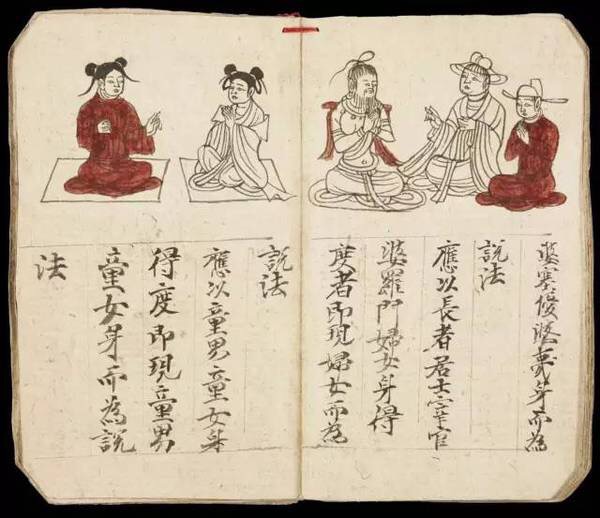 婆塞優婆夷身而為
說法
應以長者居士宰官
婆羅門婦女身得
度者即現婦女而為
說法
應以童男童女身
得度即現童男
童女身而為說
法